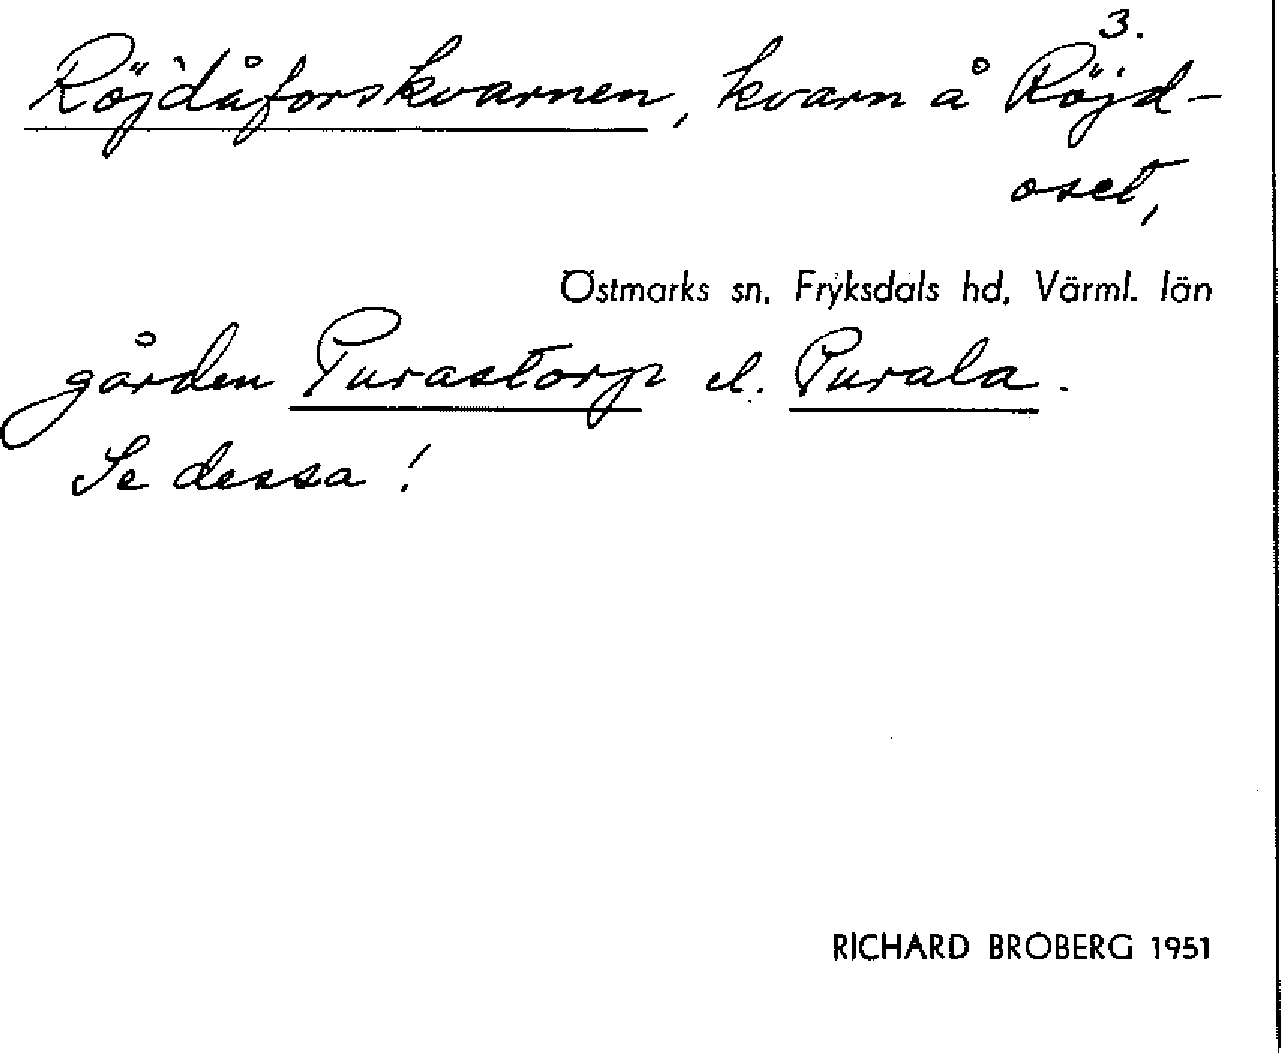 3.
Röjdåforskvarnen, kvarn å Röjd-
oset,
Östmarks sn, Fryksdals hd, Värml. län
gården Purastorp el. Purala.
Se dessa!
RICHARD BROBERG 1951